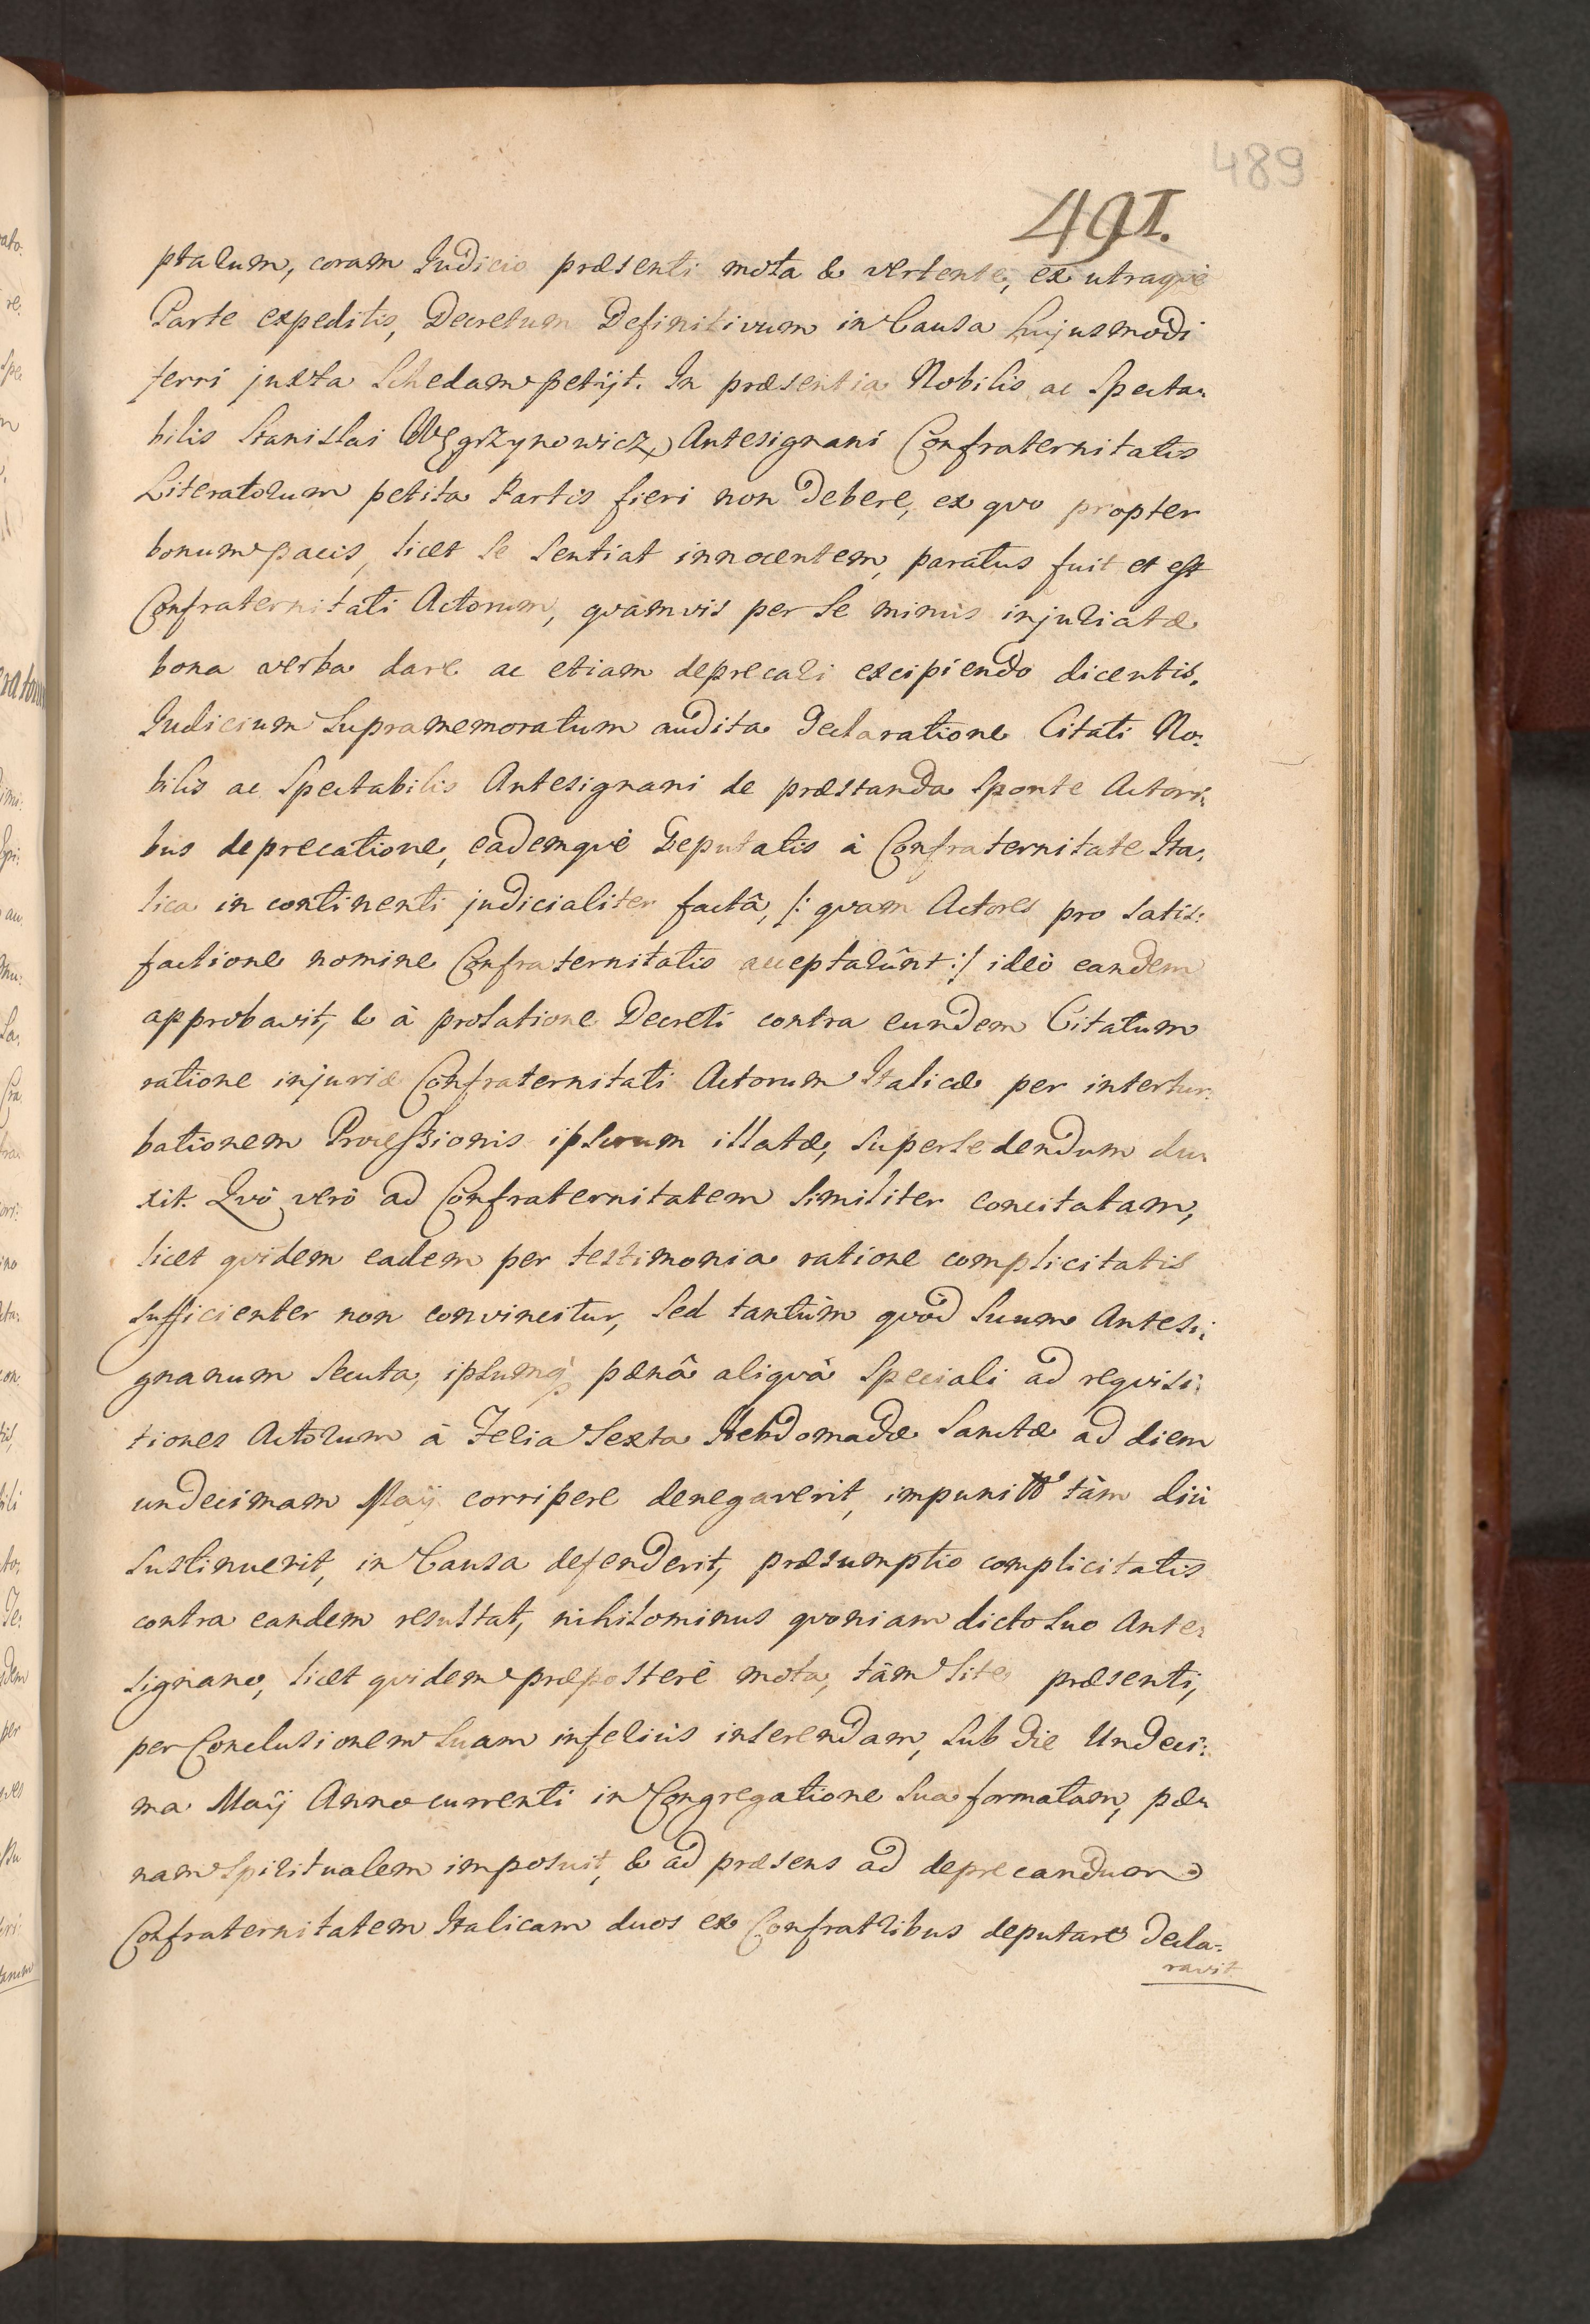 489
491.
ptarum, coram Judicio præsenti mota & vertente, ex utraqvè
Parte expeditis, Decretum Definitivum in Causa hujusmodi
ferri juxta Schedam petijt. In præsentia Nobilis ac Specta-
bilis Stanislai Węgrzynowicz Antesignani Confraternitatis
Literatorum petita Partis fieri non debere, ex qvo propter
bonum pacis, licet se sentiat innocentem, paratus fuit et est
Confraternitati Actorum, qvamvis per se minus injuriatæ
bona verba dare ac etiam deprecari excipiendo dicentis.
Judicium Supramemoratum audita Declaratione Citati No:
bilis ac Spectabilis Antesignani de præstanda sponte Actori:
bus deprecatione, eademqvè Deputatis à Confraternitate Ita:
lica in continenti judicialiter factâ, /: qvam Actores pro satis:
factione nomine Confraternitatis acceptarûnt :/ ideò eandem
approbavit, & à prolatione Decreti contra eundem Citatum
ratione injuriæ Confraternitati Actorum Italicæ per intertur:
bationem Processionis ipsorum illatæ, supersedendum du:
xit. Qvò verò ad Confraternitatem similiter concitatam,
licet qvidem eadem per testimonia ratione complicitatis
sufficienter non convincitur, sed tantùm qvòd suum Antesi:
gnanum secuta, ipsumq́; pænâ aliqvâ speciali ad reqvisi:
tiones Actorum à Feria Sexta Hebdomadæ Sanctæ ad diem
undecimam Maij corripere denegaverit, impunitè tàm diù
sustinuerit, in Causa defenderit, præsumptio complicitatis
contra eandem resultat, nihilominus qvoniam dicto suo Ante:
signano, licet qvidem præposterè mota, tàm lite præsenti,
per Conclusionem suam inferiùs inserendam, sub die Undeci:
ma Maij Anno currenti in Congregatione sua formatam, pæ:
nam spiritualem imposuit, & ad præsens ad deprecandum
Confraternitatem Italicam duos ex Confratribus deputare decla:
ravit